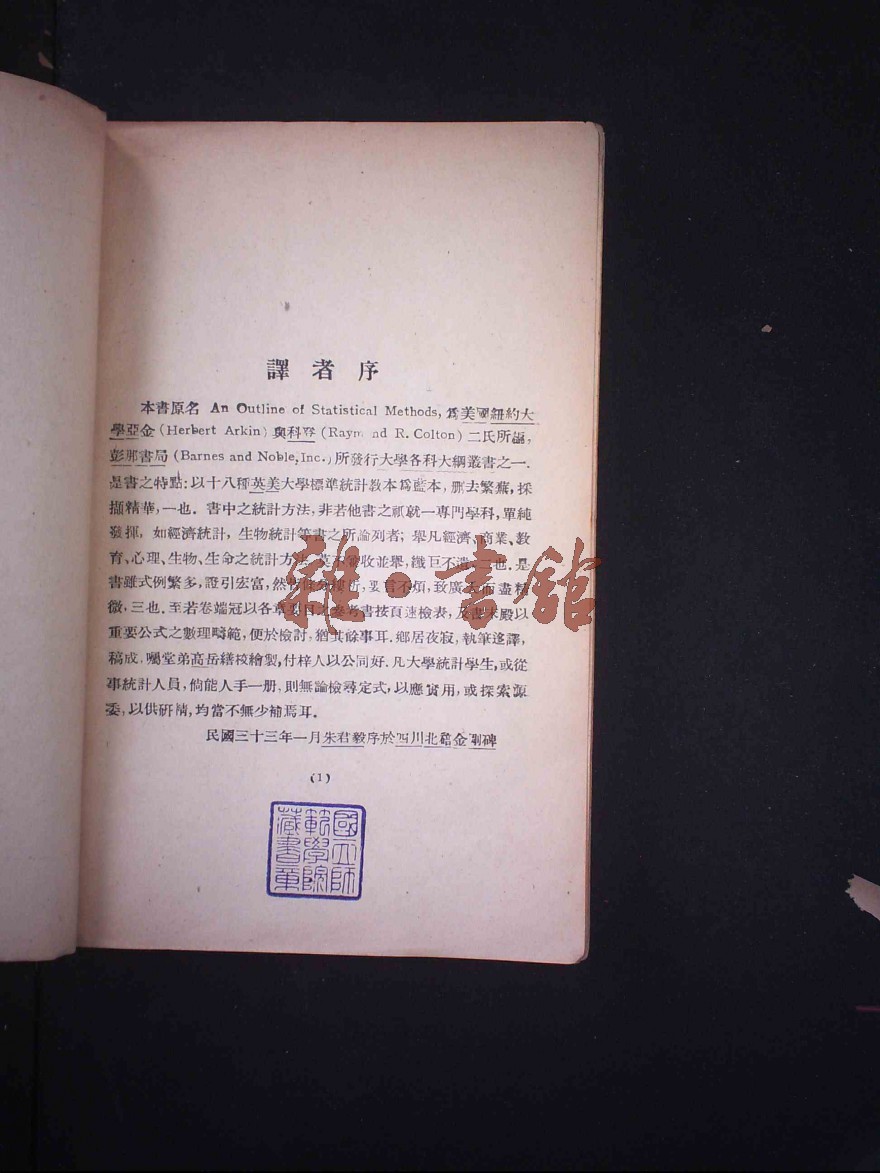 譯者序
本書原名 An Outline of Statistical Methods, 爲美國紐約大
學亞金 (Herbert Arkin) 與科登 (Raym nd R. Colton) 二氏所編,
彭那書局 (Barnes and Noble, Inc.) 所發行大學各科大綱叢書之一.
是書之特點: 以十八種英美大學標準統計敎本爲藍本, 刪去繁蕪, 採
擷精華, 一也. 書中之統計方法, 非若他書之祇就一專門學科, 單純
發揮, 如經濟統計, 生物統計等書之所論列者; 舉凡經濟、商業、敎
育、心理、生物、生命之統計方法, 莫不兼收並舉, 纖巨不遺, 二也. 是
書雖式例繁多, 證引宏富, 然皆 要言不煩, 致廣大而盡精
微, 三也. 至若卷端冠以各章要目之參考書按頁速檢表, 及書末殿以
重要公式之數理疇範, 便於檢討, 猶其餘事耳. 鄉居夜寂, 執筆迻譯,
稿成, 囑堂弟高岳繕校繪製, 付梓人以公同好. 凡大學統計學生, 或從
事統計人員, 倘能人手一册, 則無論檢尋定式, 以應實用, 或探索源
委, 以供研精, 均當不無少補焉耳.
民國三十三年一月朱君毅序於四川北碚金剛碑
(1)
國立師
範學院
藏書章
雜·書舘